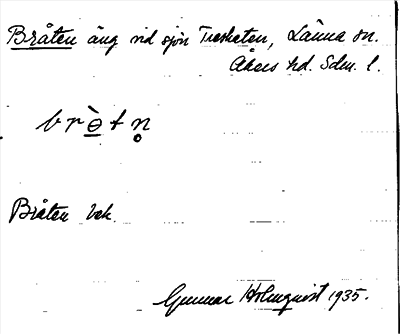 Bråten äng vid sjön Trehaten, Länna sn.
Åkers hd. Sdm. l.
br&#x27;ɵ̲tn̥
Bråten bek.
Gunnar Holmquist 1935.